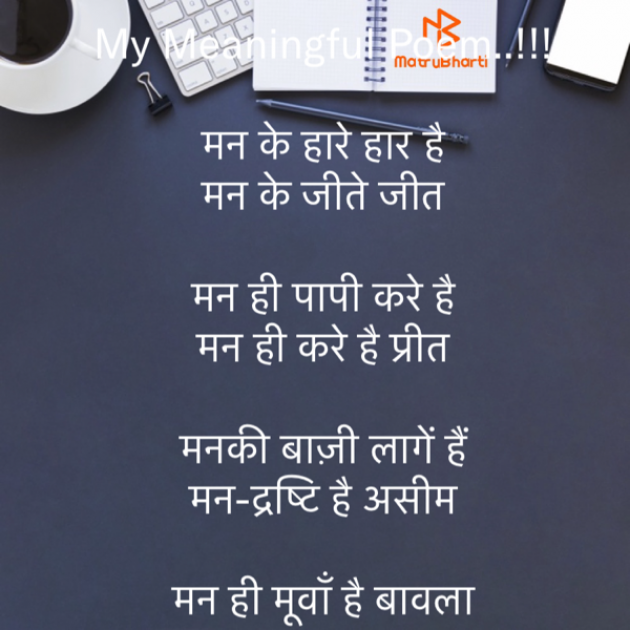 My Meaningful Poem..!!!
MatruBharti
मन के हारे हार है
मन के जीते जीत
मन ही पापी करे है
मन ही करे है प्रीत
मनकी बाज़ी लागें हैं
मन-द्रष्टि है असीम
मन ही मूवाँ है बावला